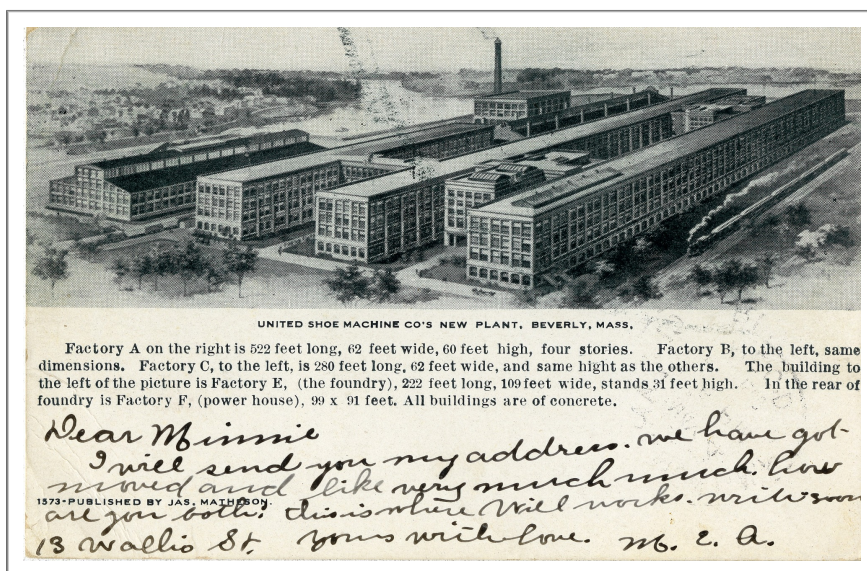 UNITED SHOE MACHINE CO'S NEW PLANT, BEVERLY, MASS.
Factory A on the right is 522 feet long, 62 feet wide, 60 feet high, four stories. Factory B, to the left, same
dimensions. Factory C, to the left, is 280 feet long, 62 feet wide, and same hight as the others. The building to
the left of the picture is Factory E, (the foundry), 222 feet long, 109 feet wide, stands 31 feet high. In the rear of
foundry is Factory F, (power house), 99 x 91 feet. All buildings are of concrete.
Dear Minnie
I will send you my address. we have got
moved and like very much much. how
1573-PUBLISHED BY JAS. MATHESON.
are you both? this is where Will works. write soon
13 Wallis St. yours with love. M. E. A.